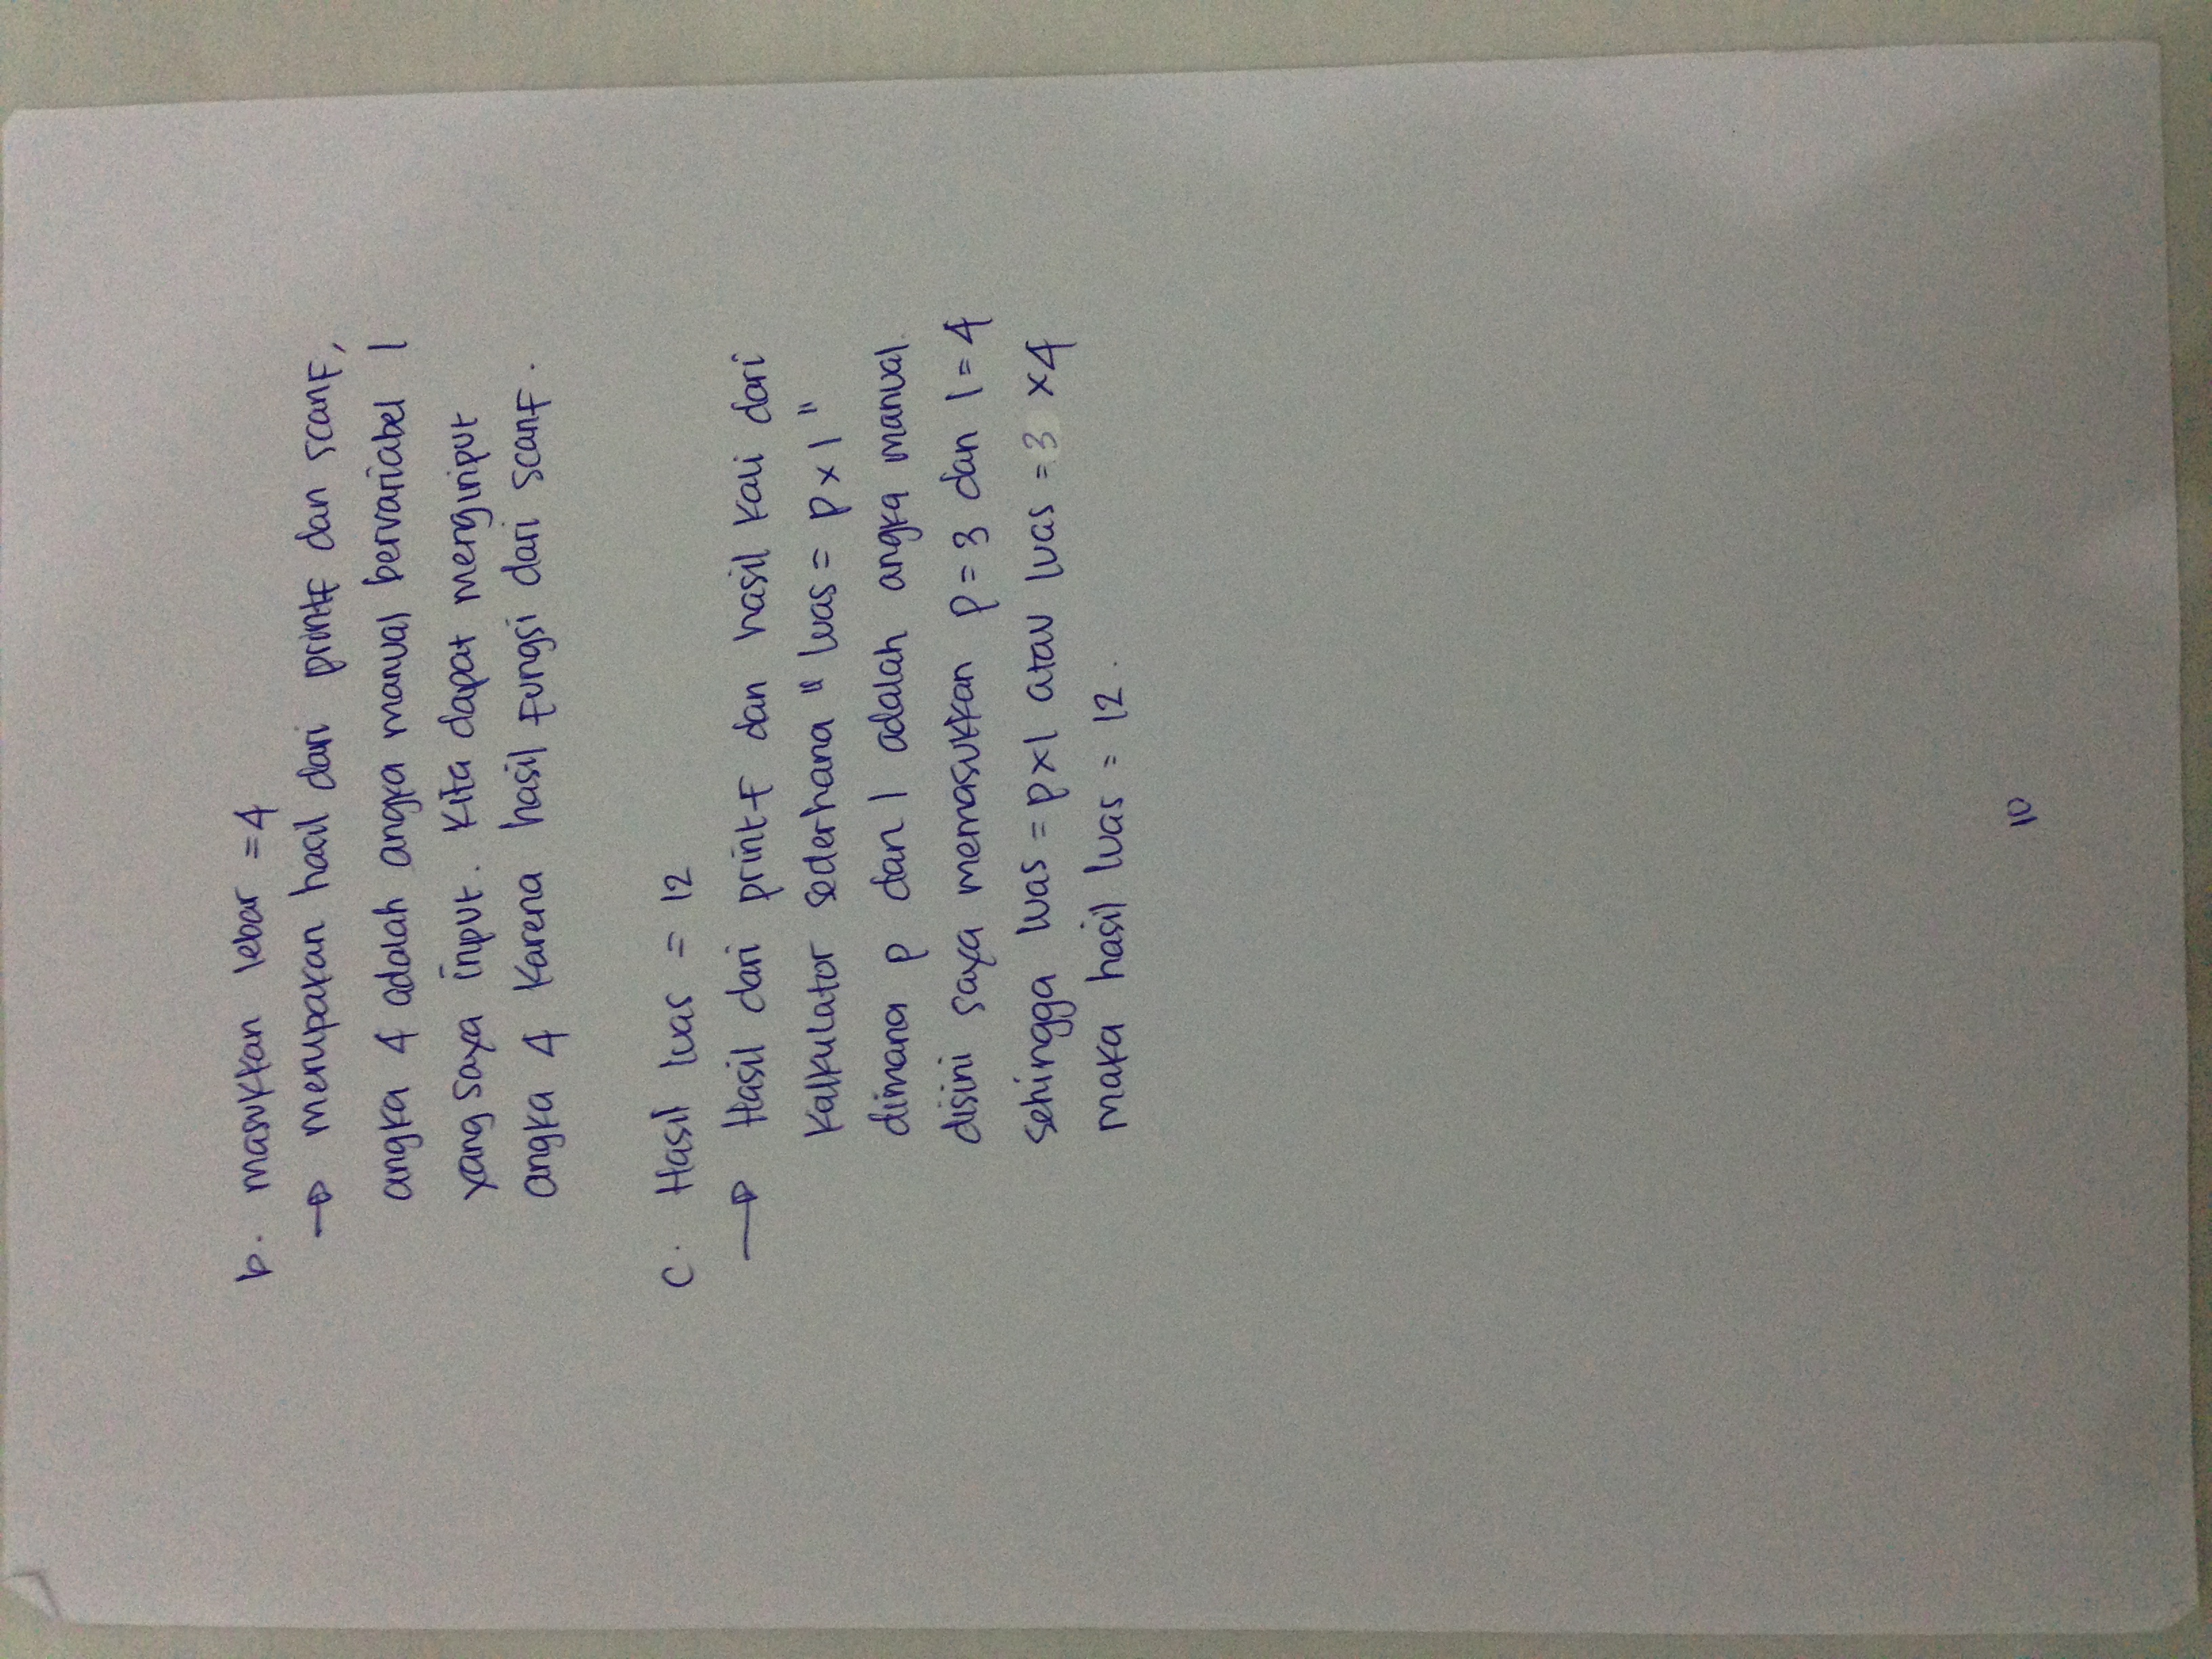 b. masukkan lebar = 4
→ merupakan hasil dari printf dan scanf,
angka 4 adalah angka manual bervariabel l
yang saya input. Kita dapat menginput
angka 4 karena hasil fungsi dari scanf.
c. Hasil luas = 12
→ Hasil dari printf dan hasil kali dari
kalkulator sederhana "luas = p x l"
dimana p dan l adalah angka manual.
disini saya memasukkan p = 3 dan l = 4
sehingga luas = p x l atau luas = 3 x 4
maka hasil luas = 12.
10